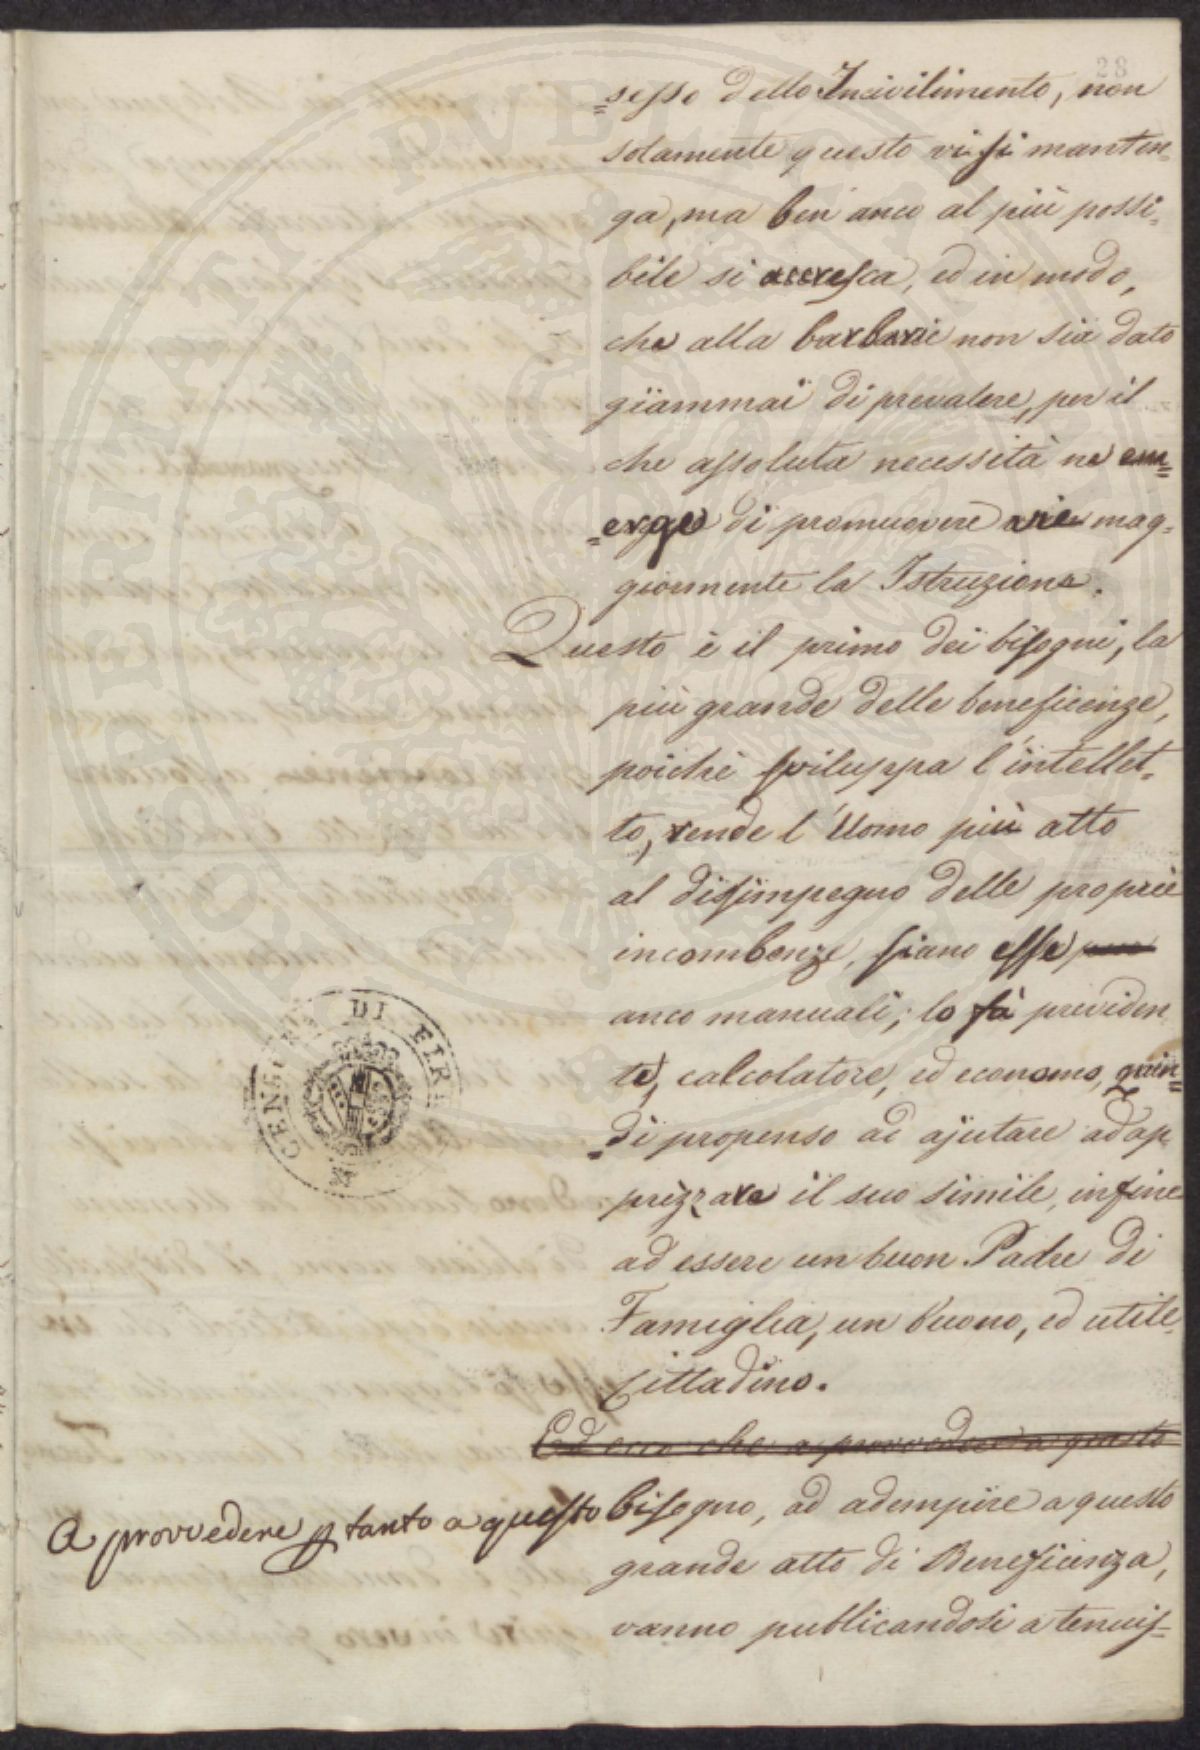 28
=sesso dello Incivilimento, non
solamente questo vi si manten=
ga, ma ben anco al più possi=
bile si accresca, ed in modo,
che alla barbarie non sia dato
giammai di prevalere, per il
che assoluta necessità ne em=
=erge di promuovere vie mag=
giormente la Istruzione.
Questo è il primo dei bisogni, la
più grande delle beneficenze,
poichè sviluppa l'intellet=
to, rende l'Uomo più atto
al disimpegno delle proprie
incombenze, siano esse
anco manuali; lo fà previden
te, calcolatore, ed economo, quin=
=di propenso ad ajutare ad ap
prezzare il suo simile, infine
ad essere un buon Padre di
Famiglia, un buono, ed utile
Cittadino.
Ed ecco che a provvedere a questo
A provvedere ptanto a questo bisogno, ad adempire a questo
grande atto di Beneficenza,
vanno publicandosi a tenuis=
CENSURA DI FIRE
PROSPERITATI PVBLICAE